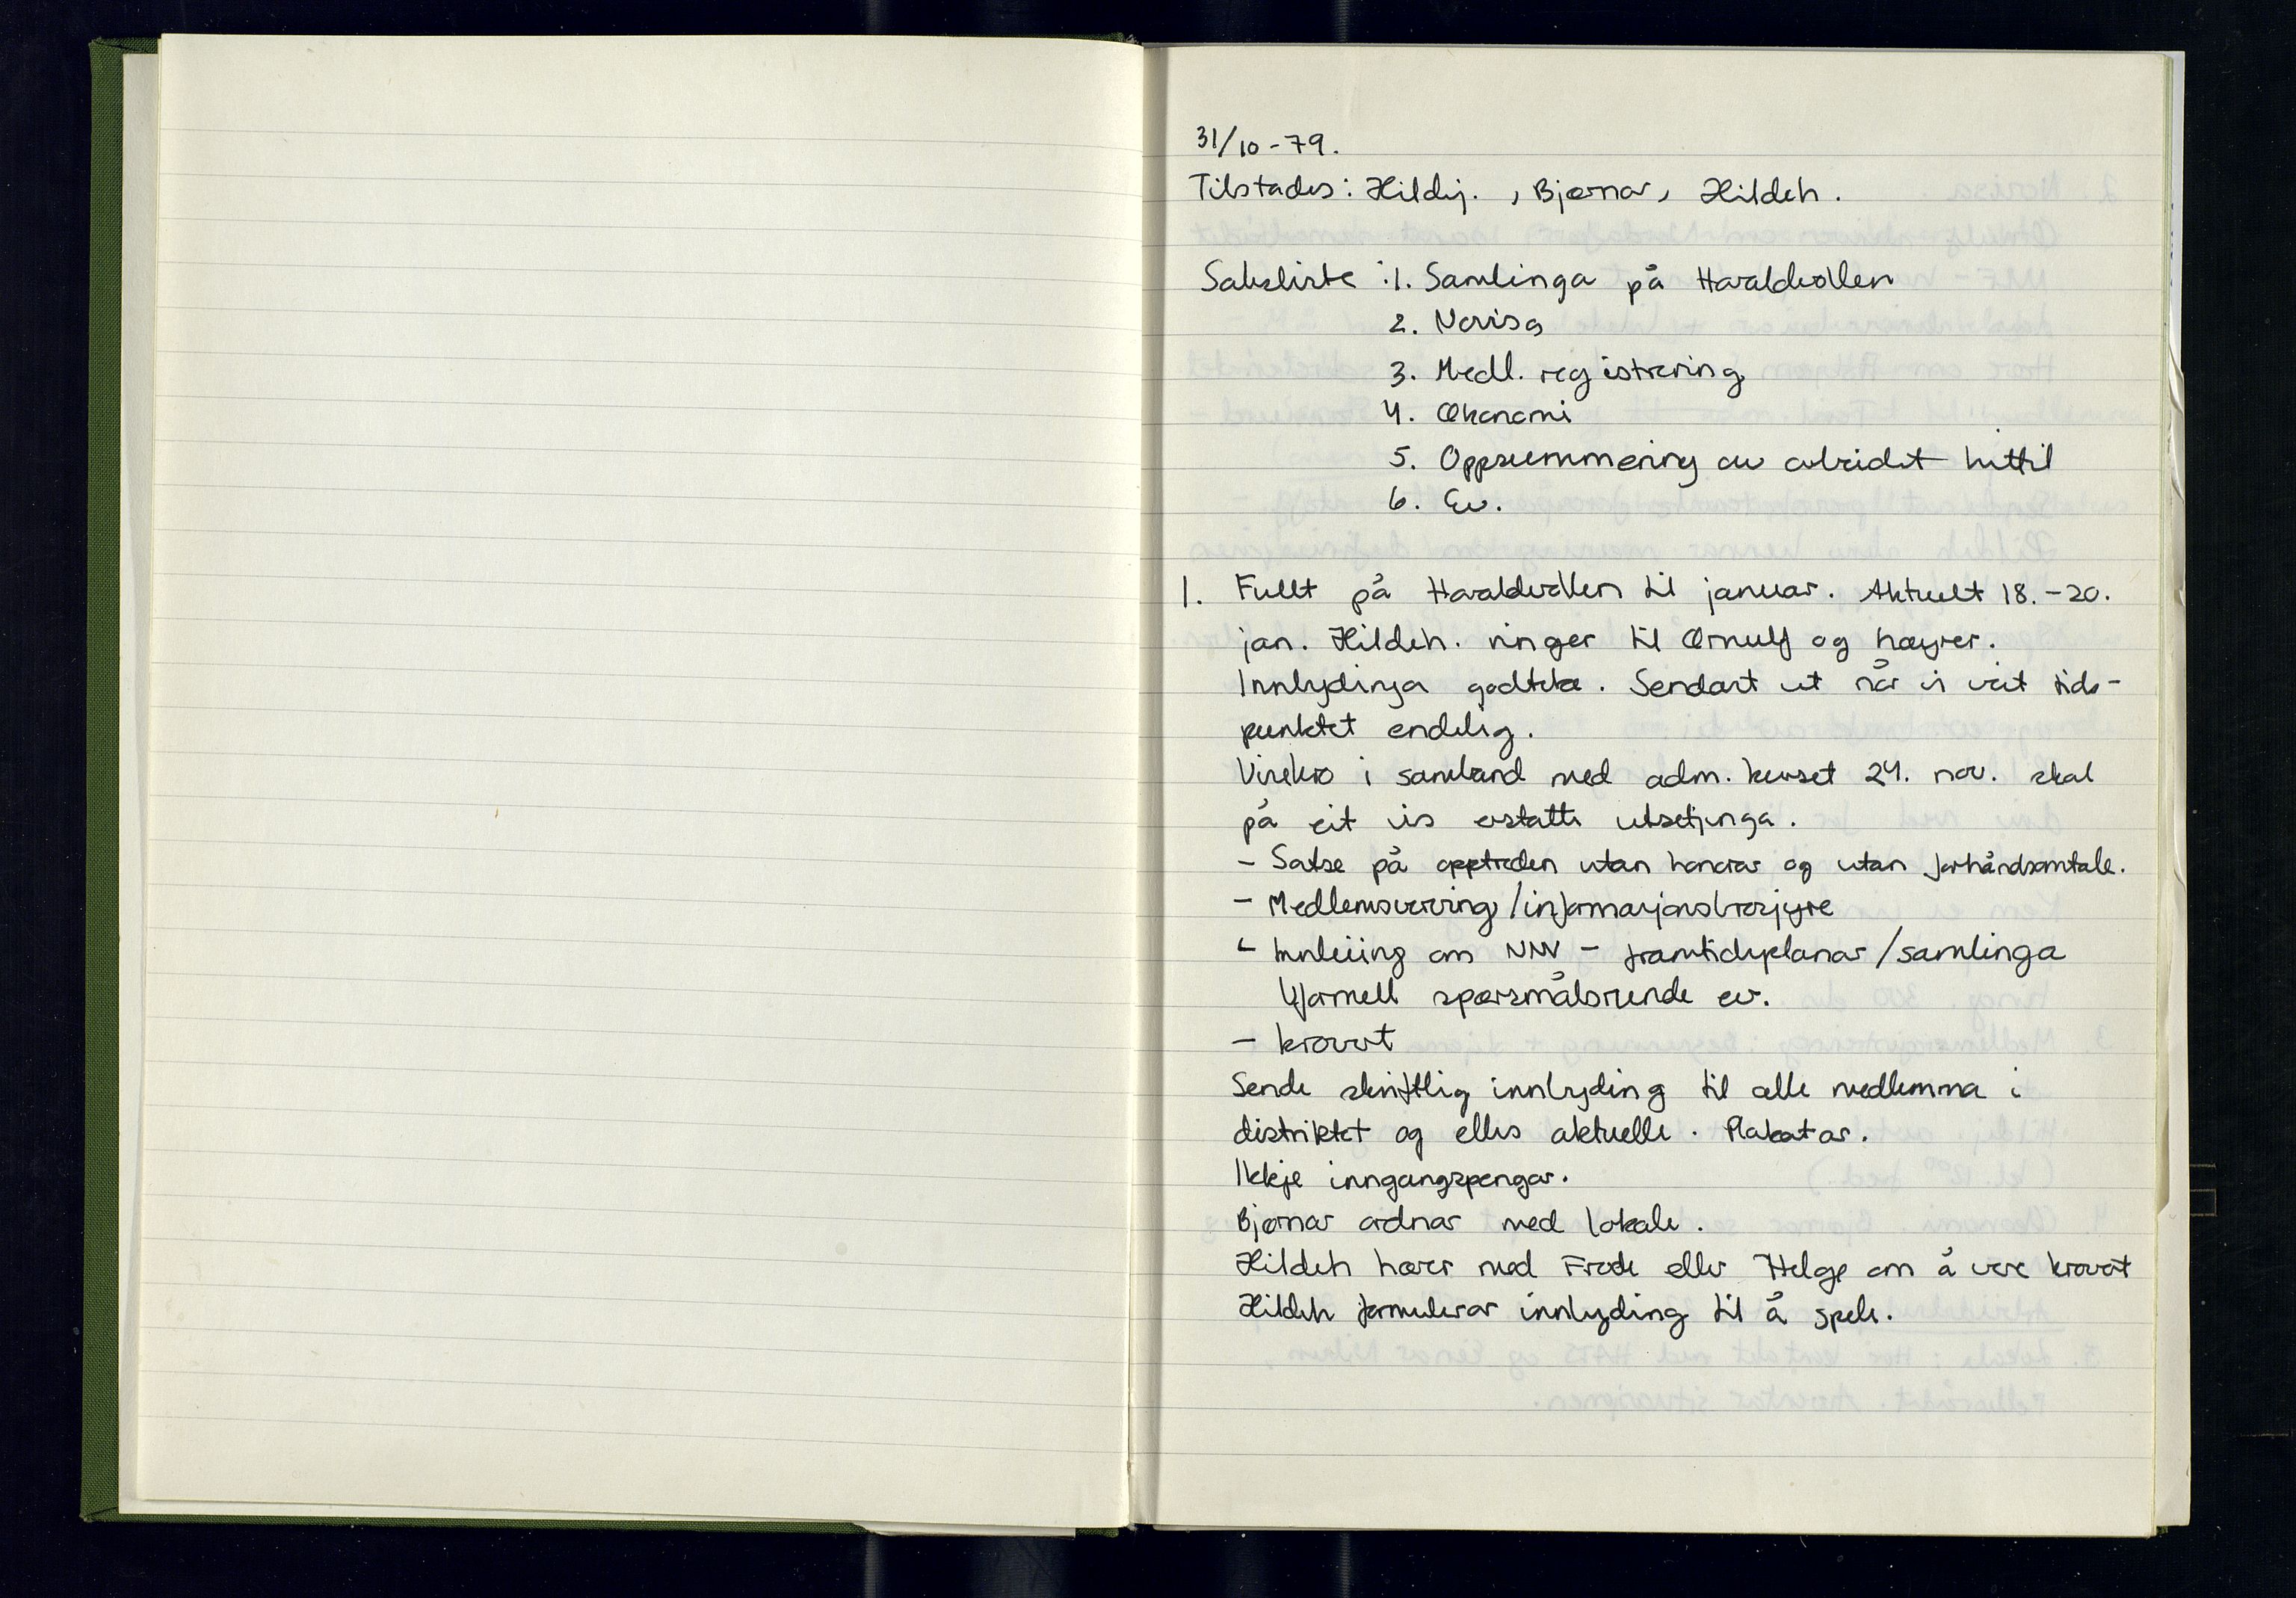 31/10-79.
Tilstades: Hildej. , Bjørnar, Hildeh.
Saksliste : 1. Samlinga på Haraldvollen
2. Norvisa
3. Medl. registrering
4. Økonomi
5. Oppsummering av arbeidet hittil
6. Ev.
1. Fullt på Haraldvollen til januar. Aktuelt 18.-20.
jan. Hildeh. ringer til Ørnulf og høyrer.
Innbydinga godteke. Sendast ut når vi veit tids-
punktet endelig.
Visekro i samband med adm. kurset 24. nov. skal
på eit vis erstatte utsetjinga.
- Satse på opptreden utan honorar og utan forhåndsomtale.
- Medlemsverving/informasjonsbrosjyre
- Innleiing om NNV - framtidsplanar/samlinga
Uformell spørsmålsrunde ev.
- krovert
Sende skriftlig innbyding til alle medlemma i
distriktet og elles aktuelle. Plakatar.
Ikkje inngangspengar.
Bjørnar ordnar med lokale.
Hildeh hører med Frode eller Helge om å vere krovert
Hildeh formulerar innbyding til å spele.